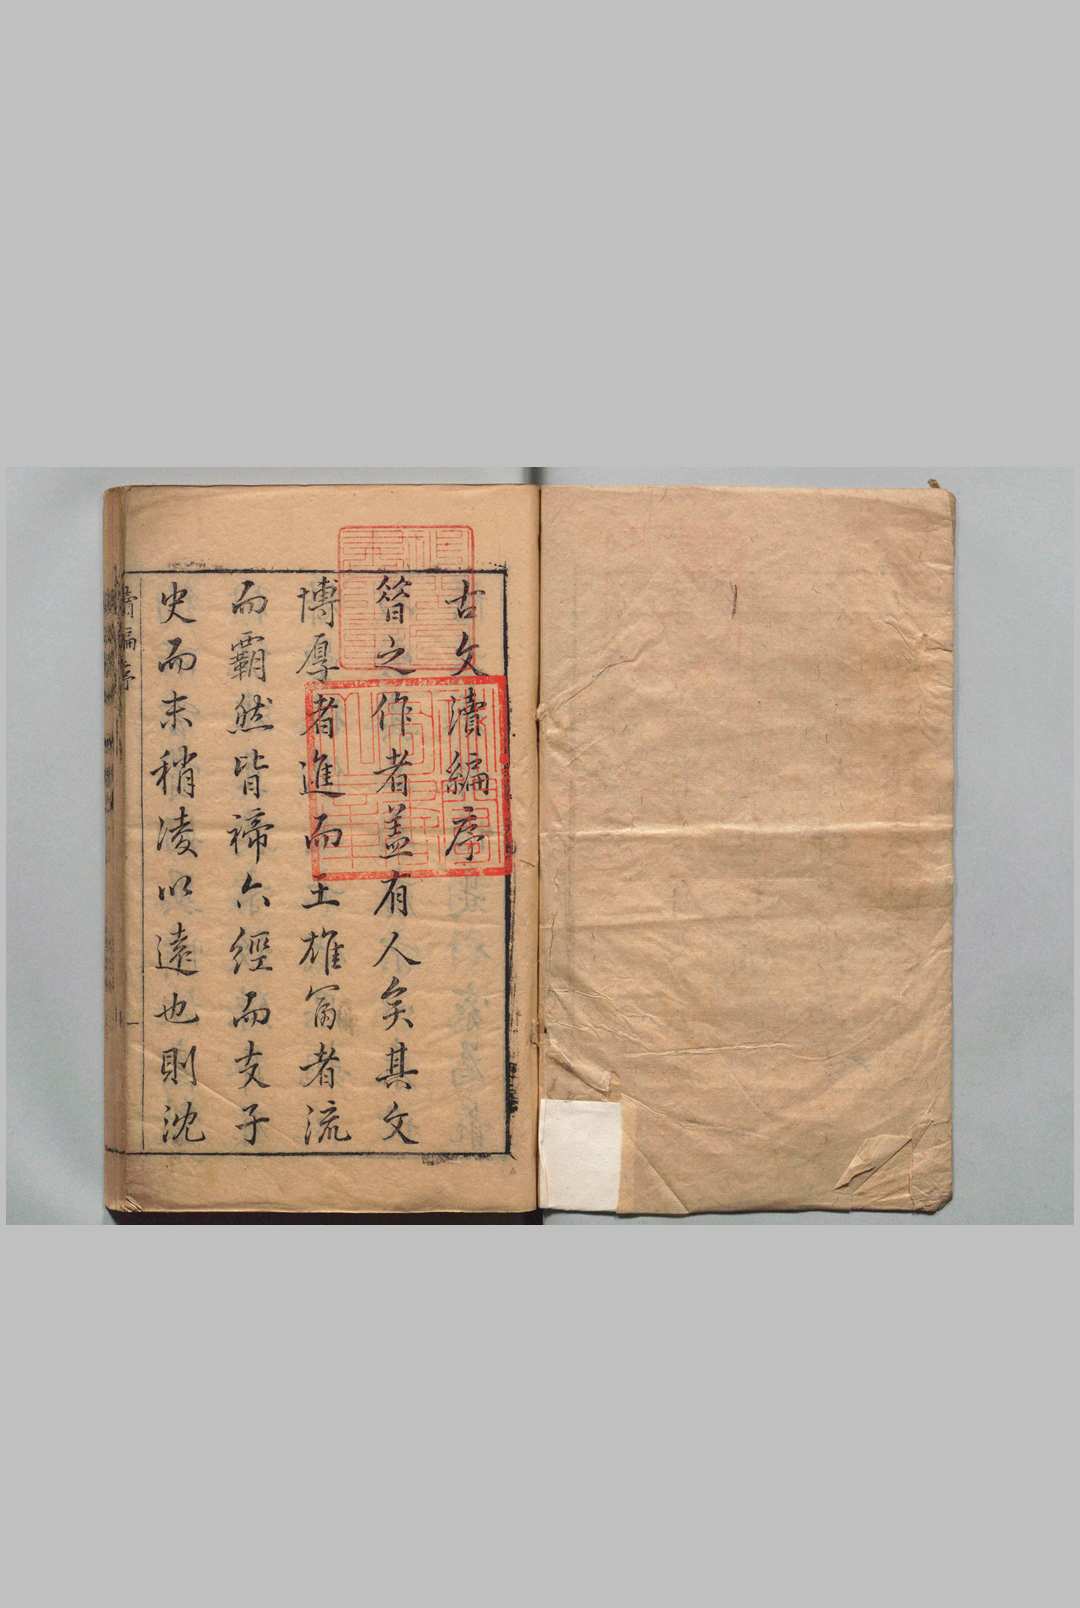 古文瀆編序
㫺之作者盖有人矣其文
博厚者進而王雄冨者流
而覇然皆禘六經而支子
史而末稍凌以遠也則沈
瀆編序
一